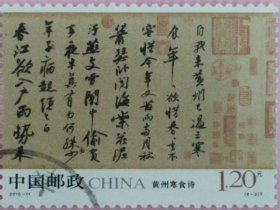 自我来黄州已過三寒
食年々欲惜春春去不
容惜今年又苦雨两月秋
蕭瑟卧聞海棠花泥
汙燕支雪闇中偷負
去夜半真有力何殊少
年子病起頭已白
春江欲入户雨勢来
中国邮政 CHINA 黄州寒食诗 1.20元
2010-11